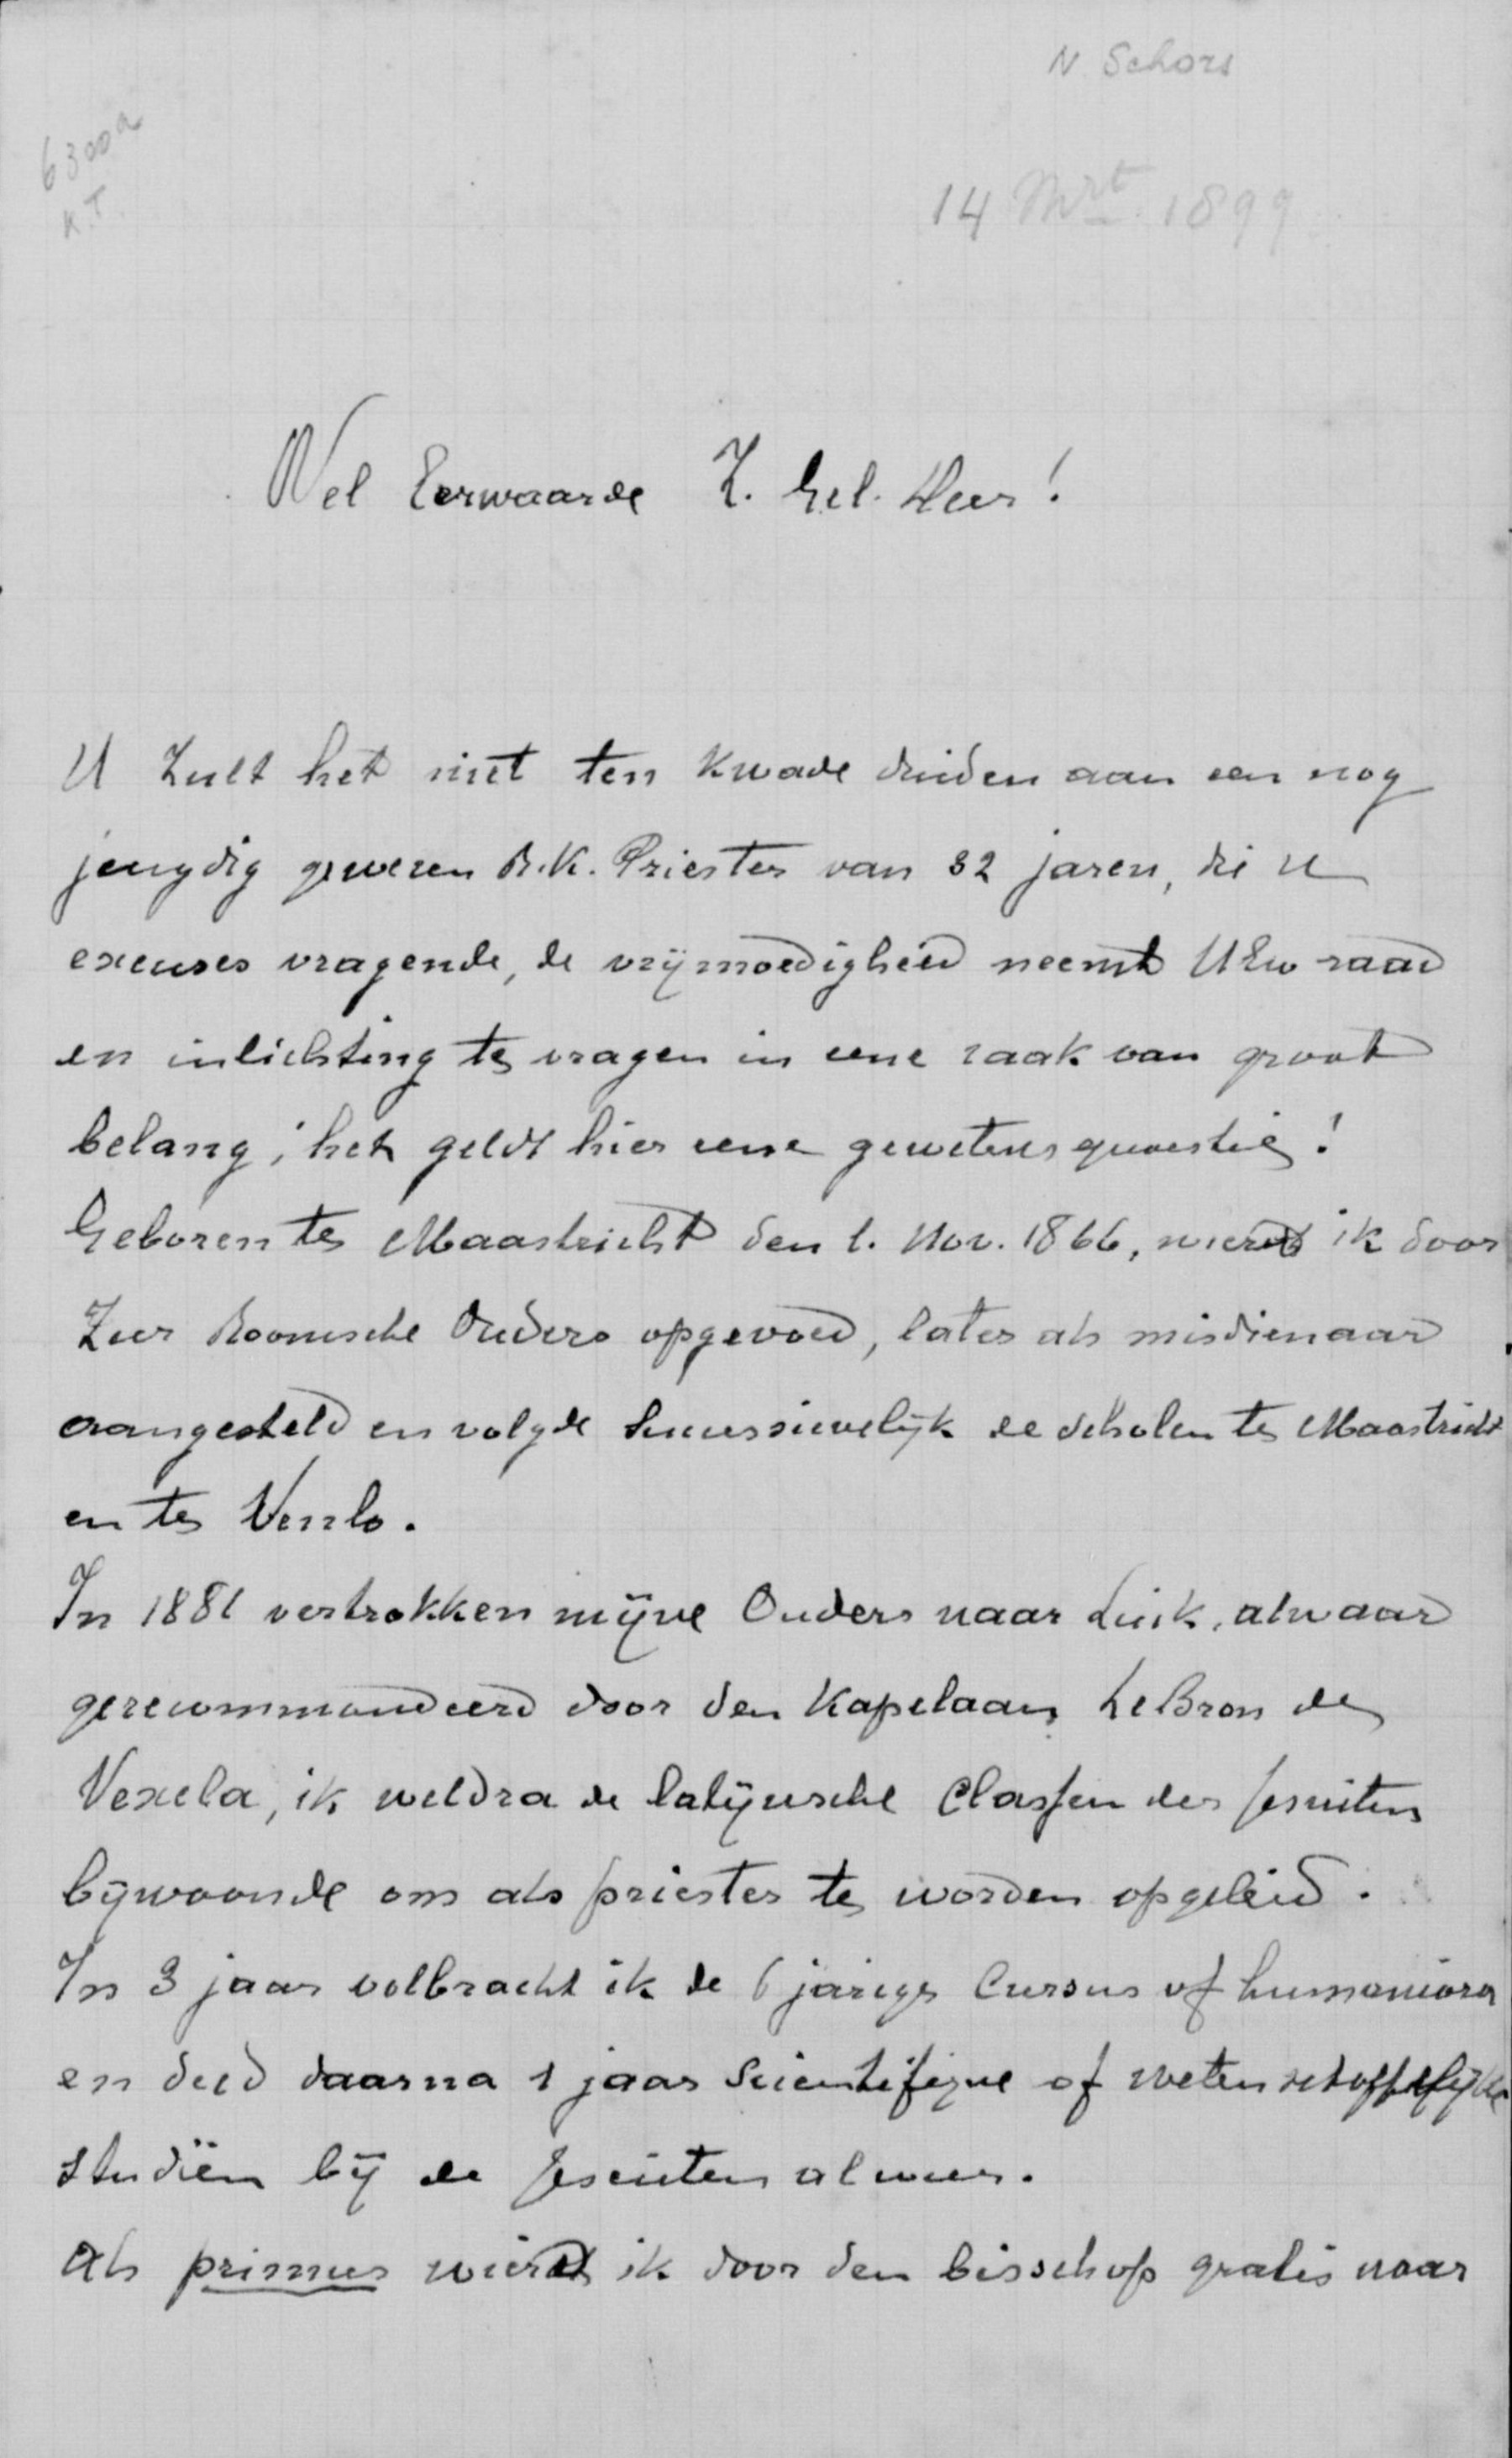 N Schors
6300a
K.T.
14 Mrt 1899
Wel Eerwaarde Z. Gel. Heer!
U Zult het niet ten Kwade duiden aan een nog
jeugdig gewezen R.K. Priester van 32 jaren, die U
excuses vragende, de vrijmoedigheid neemt UEw raad
en inlichting te vragen in eene zaak van groot
belang; het geldt hier eene gewetensquaestie!
Geboren te Maastricht den 1. Nov. 1866, wierd ik door
Zeer Roomsche Ouders opgevoed, later als misdienaar
aangesteld en volgde Successievelijk de scholen te Maastricht
en te Venlo.
In 1881 vertrokken mijne Ouders naar Luik, alwaar
gerecommandeerd door den Kapelaan LeBron de
Vexela, ik weldra de latijnsche Classen der Jesuiten
bijwoonde om als priester te worden opgeleid.
In 3 jaar volbracht ik de 6 jarige Cursus of humaniora
en deed daarna 1 jaar Scientifique of wetenschappelijke
studiën bij de Jesuiten alweer.
Als primus wierd ik door den bisschop gratis naar